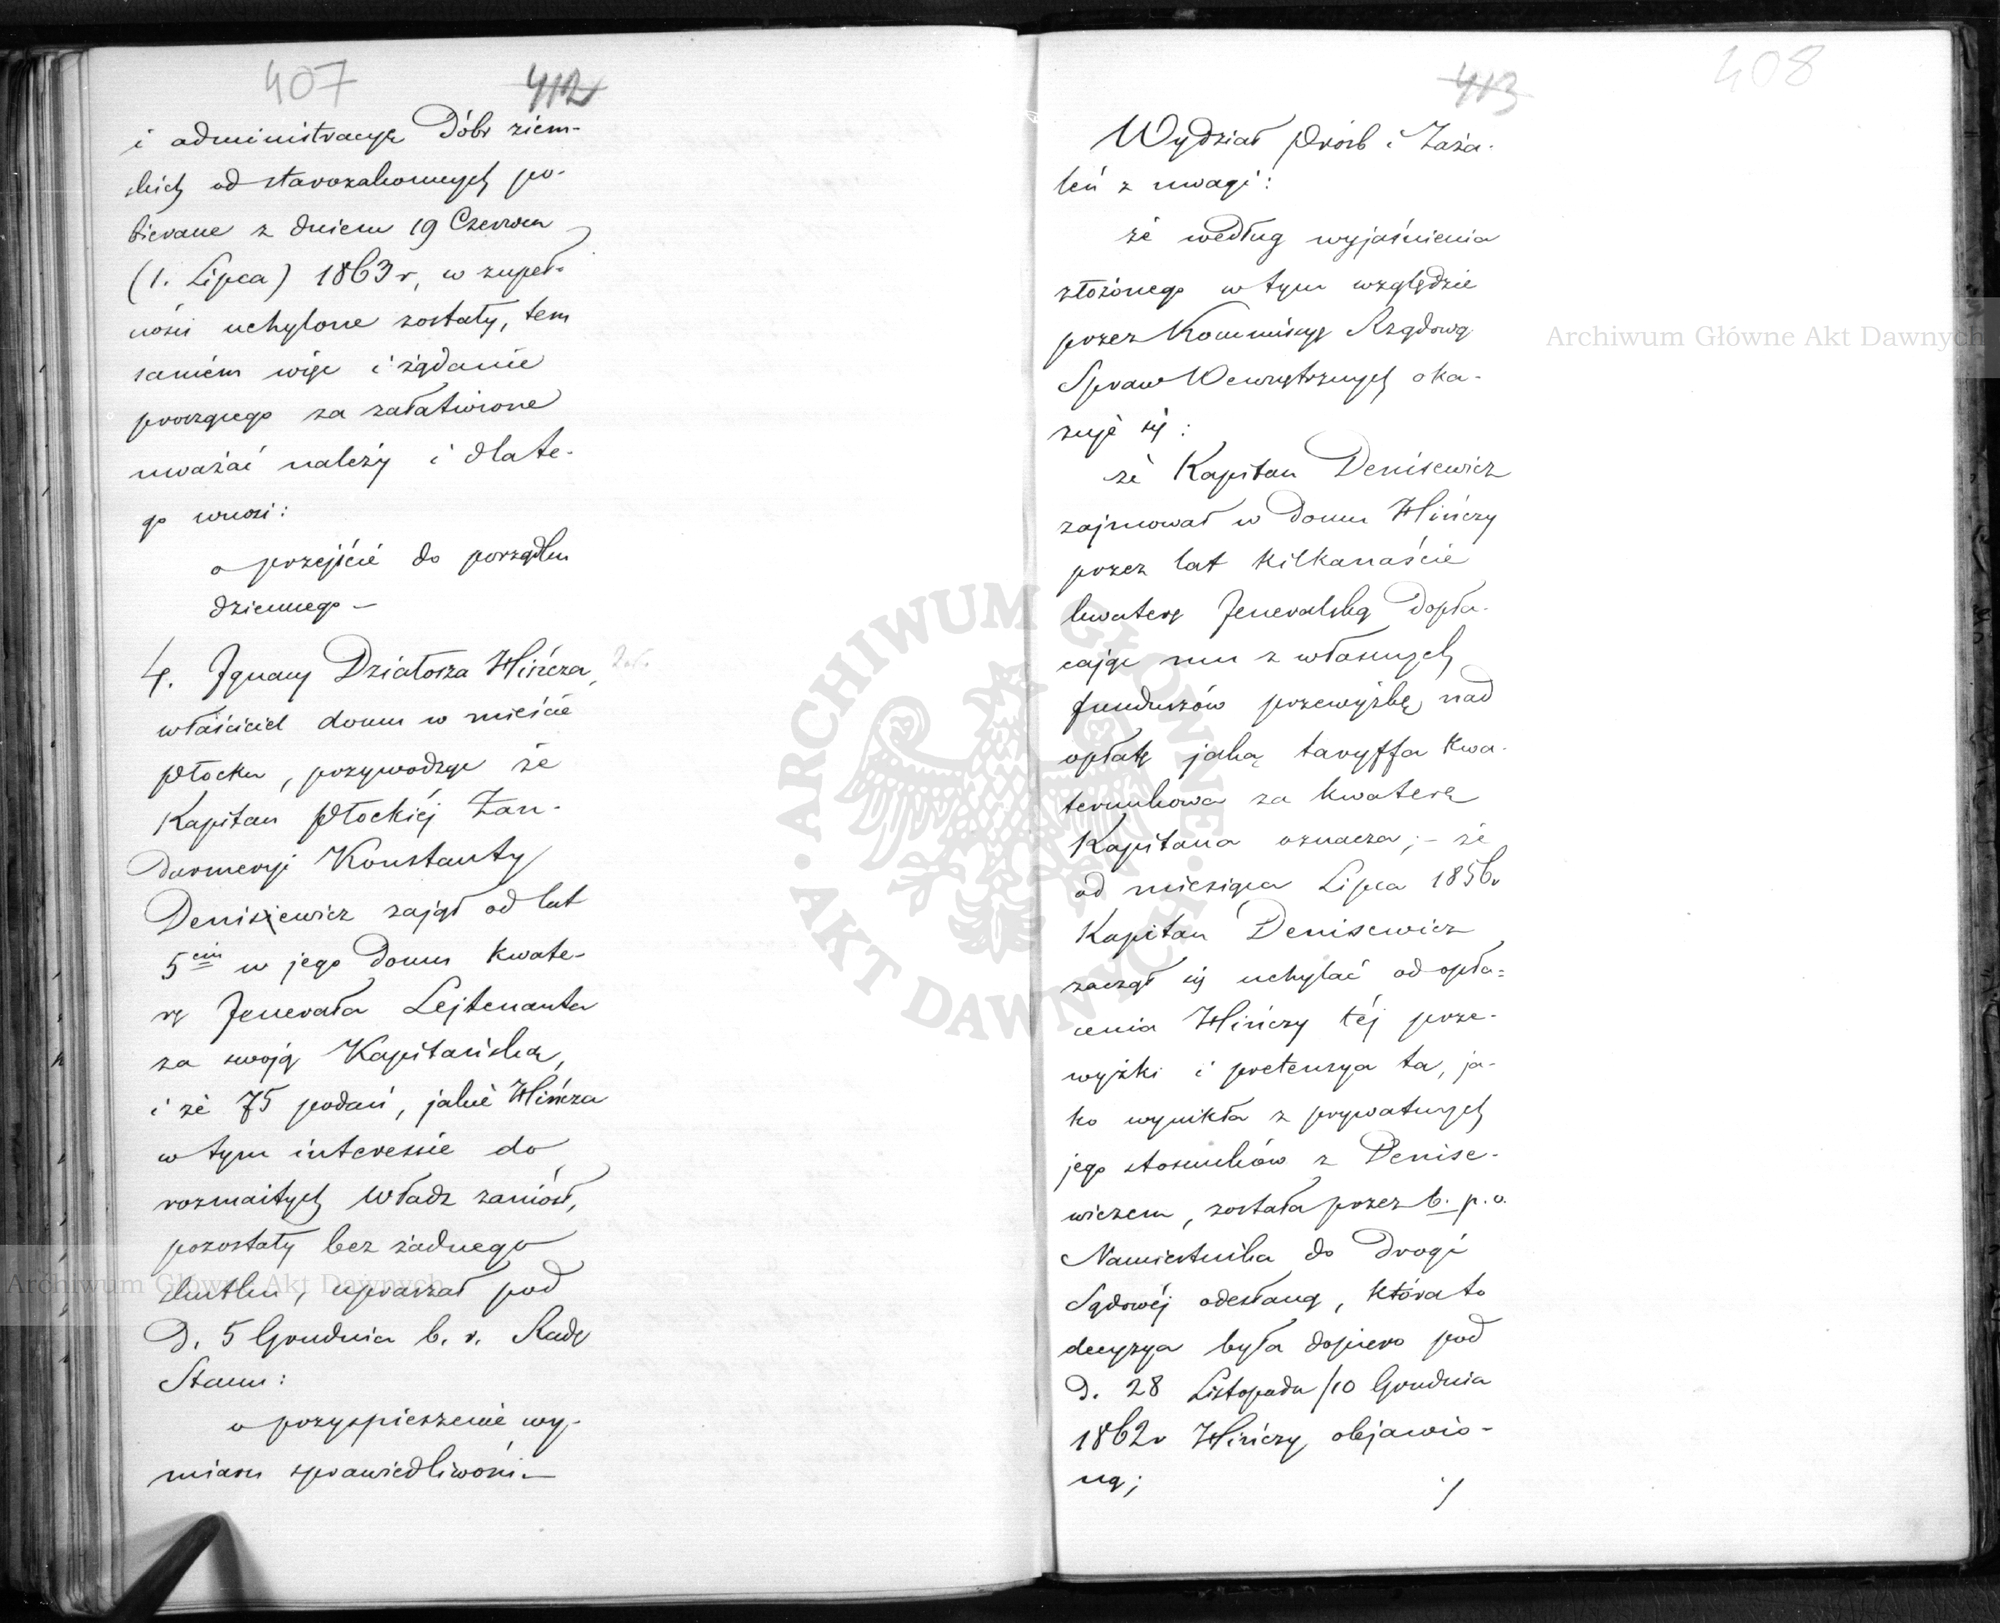 407 412
i administracyę Dóbr ziem-
skich od starozakonnych po-
bierane z dniem 19 Czerwca
(1. Lipca) 1863 r, w zupeł-
ności uchylone zostały, tem
samém więc i żądanie
proszącego za załatwione
uważać należy i dlate-
go wnosi:
o przejście do porządku
dziennego –
4. Ignacy Działosza Hińcza,
właściciel domu w mieście
Płocku, przywodząc że
Kapitan Płockiéj Żan-
darmeryi Konstanty
Denisiewicz zajął od lat
5ciu w jego domu kwate-
rę Jenerała Lejtenanta
za swoją Kapitańską,
i że 75 podań, jakie Hińcza
w tym interessie do
rozmaitych Władz zaniósł,
pozostały bez żadnego
skutku, upraszał pod
D. 5 Grudnia b. r. Radę
Stanu:
o przyspieszenie wy-
miaru sprawiedliwości –
413 408
Wydział Prośb i Zaża-
leń z uwagi:
że według wyjaśnienia
złożonego w tym względzie
przez Kommissyę Rządową
Spraw Wewnętrznych oka-
zuje się:
że Kapitan Denisewicz
zajmował w domu Hińczy
przez lat kilkanaście
kwaterę Jeneralską dopła-
cając mu z własnych
funduszów przewyżkę nad
opłatę jaką taryffa kwa-
terunkowa za kwaterę
Kapitana oznacza; – że
od miesiąca Lipca 1856 r
Kapitan Denisewicz
zaczął się uchylać od opła-
cenia Hińczy téj prze-
wyżki i pretensya ta, ja-
ko wynikła z prywatnych
jego stosunków z Denise-
wiczem, została przez b. p. o.
Namiestnika do drogi
Sądowéj odesłaną, która to
decyzya była dopiero pod
D. 28 Listopada/10 Grudnia
1862 r Hińczy objawio-
ną;
Archiwum Główne Akt Dawnych
Archiwum Główne Akt Dawnych
ARCHIWUM GŁÓWNE AKT DAWNYCH